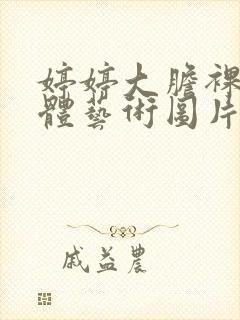 婷婷大膽裸
體藝術圖片
戚益農